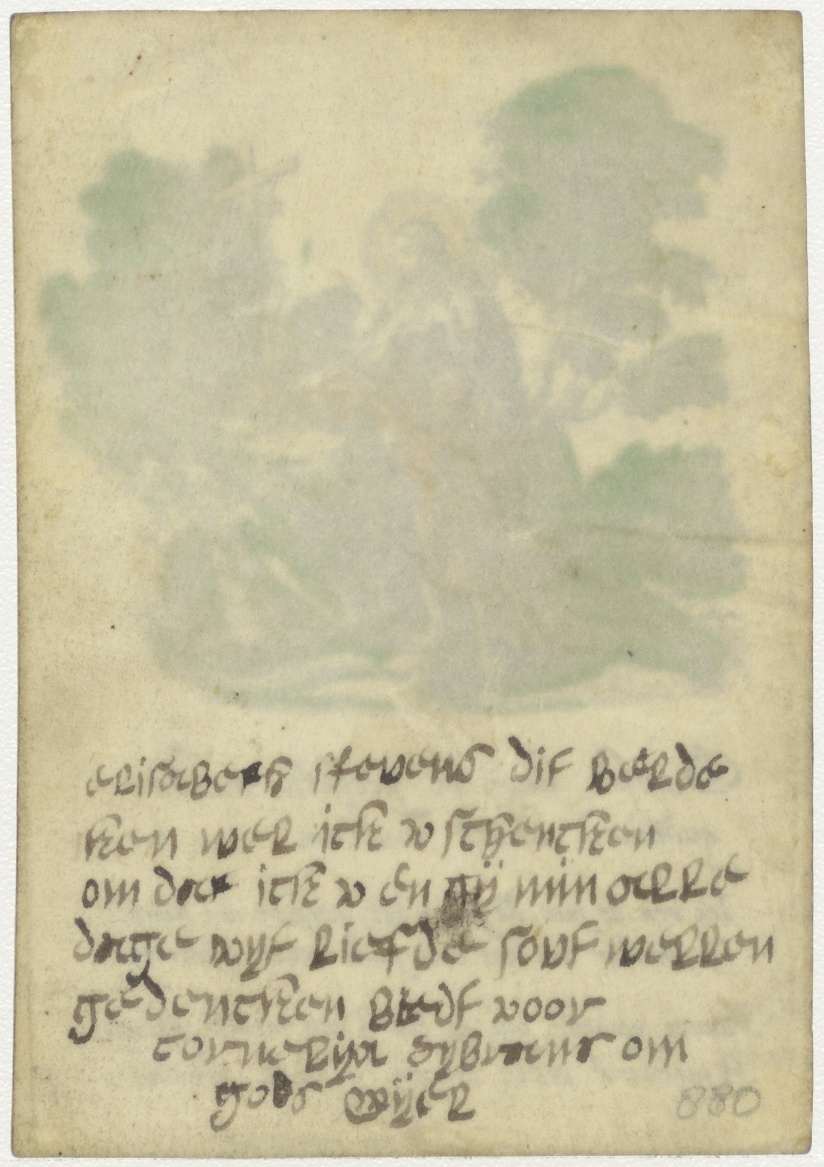 elisabeth stevens dit beelde
ken wel ick w schencken
om dat ick w en gÿ min alle
dage wyt liefde sout wellen
gedencken bidt voor
cornelija sybrans om
gods wÿel
880